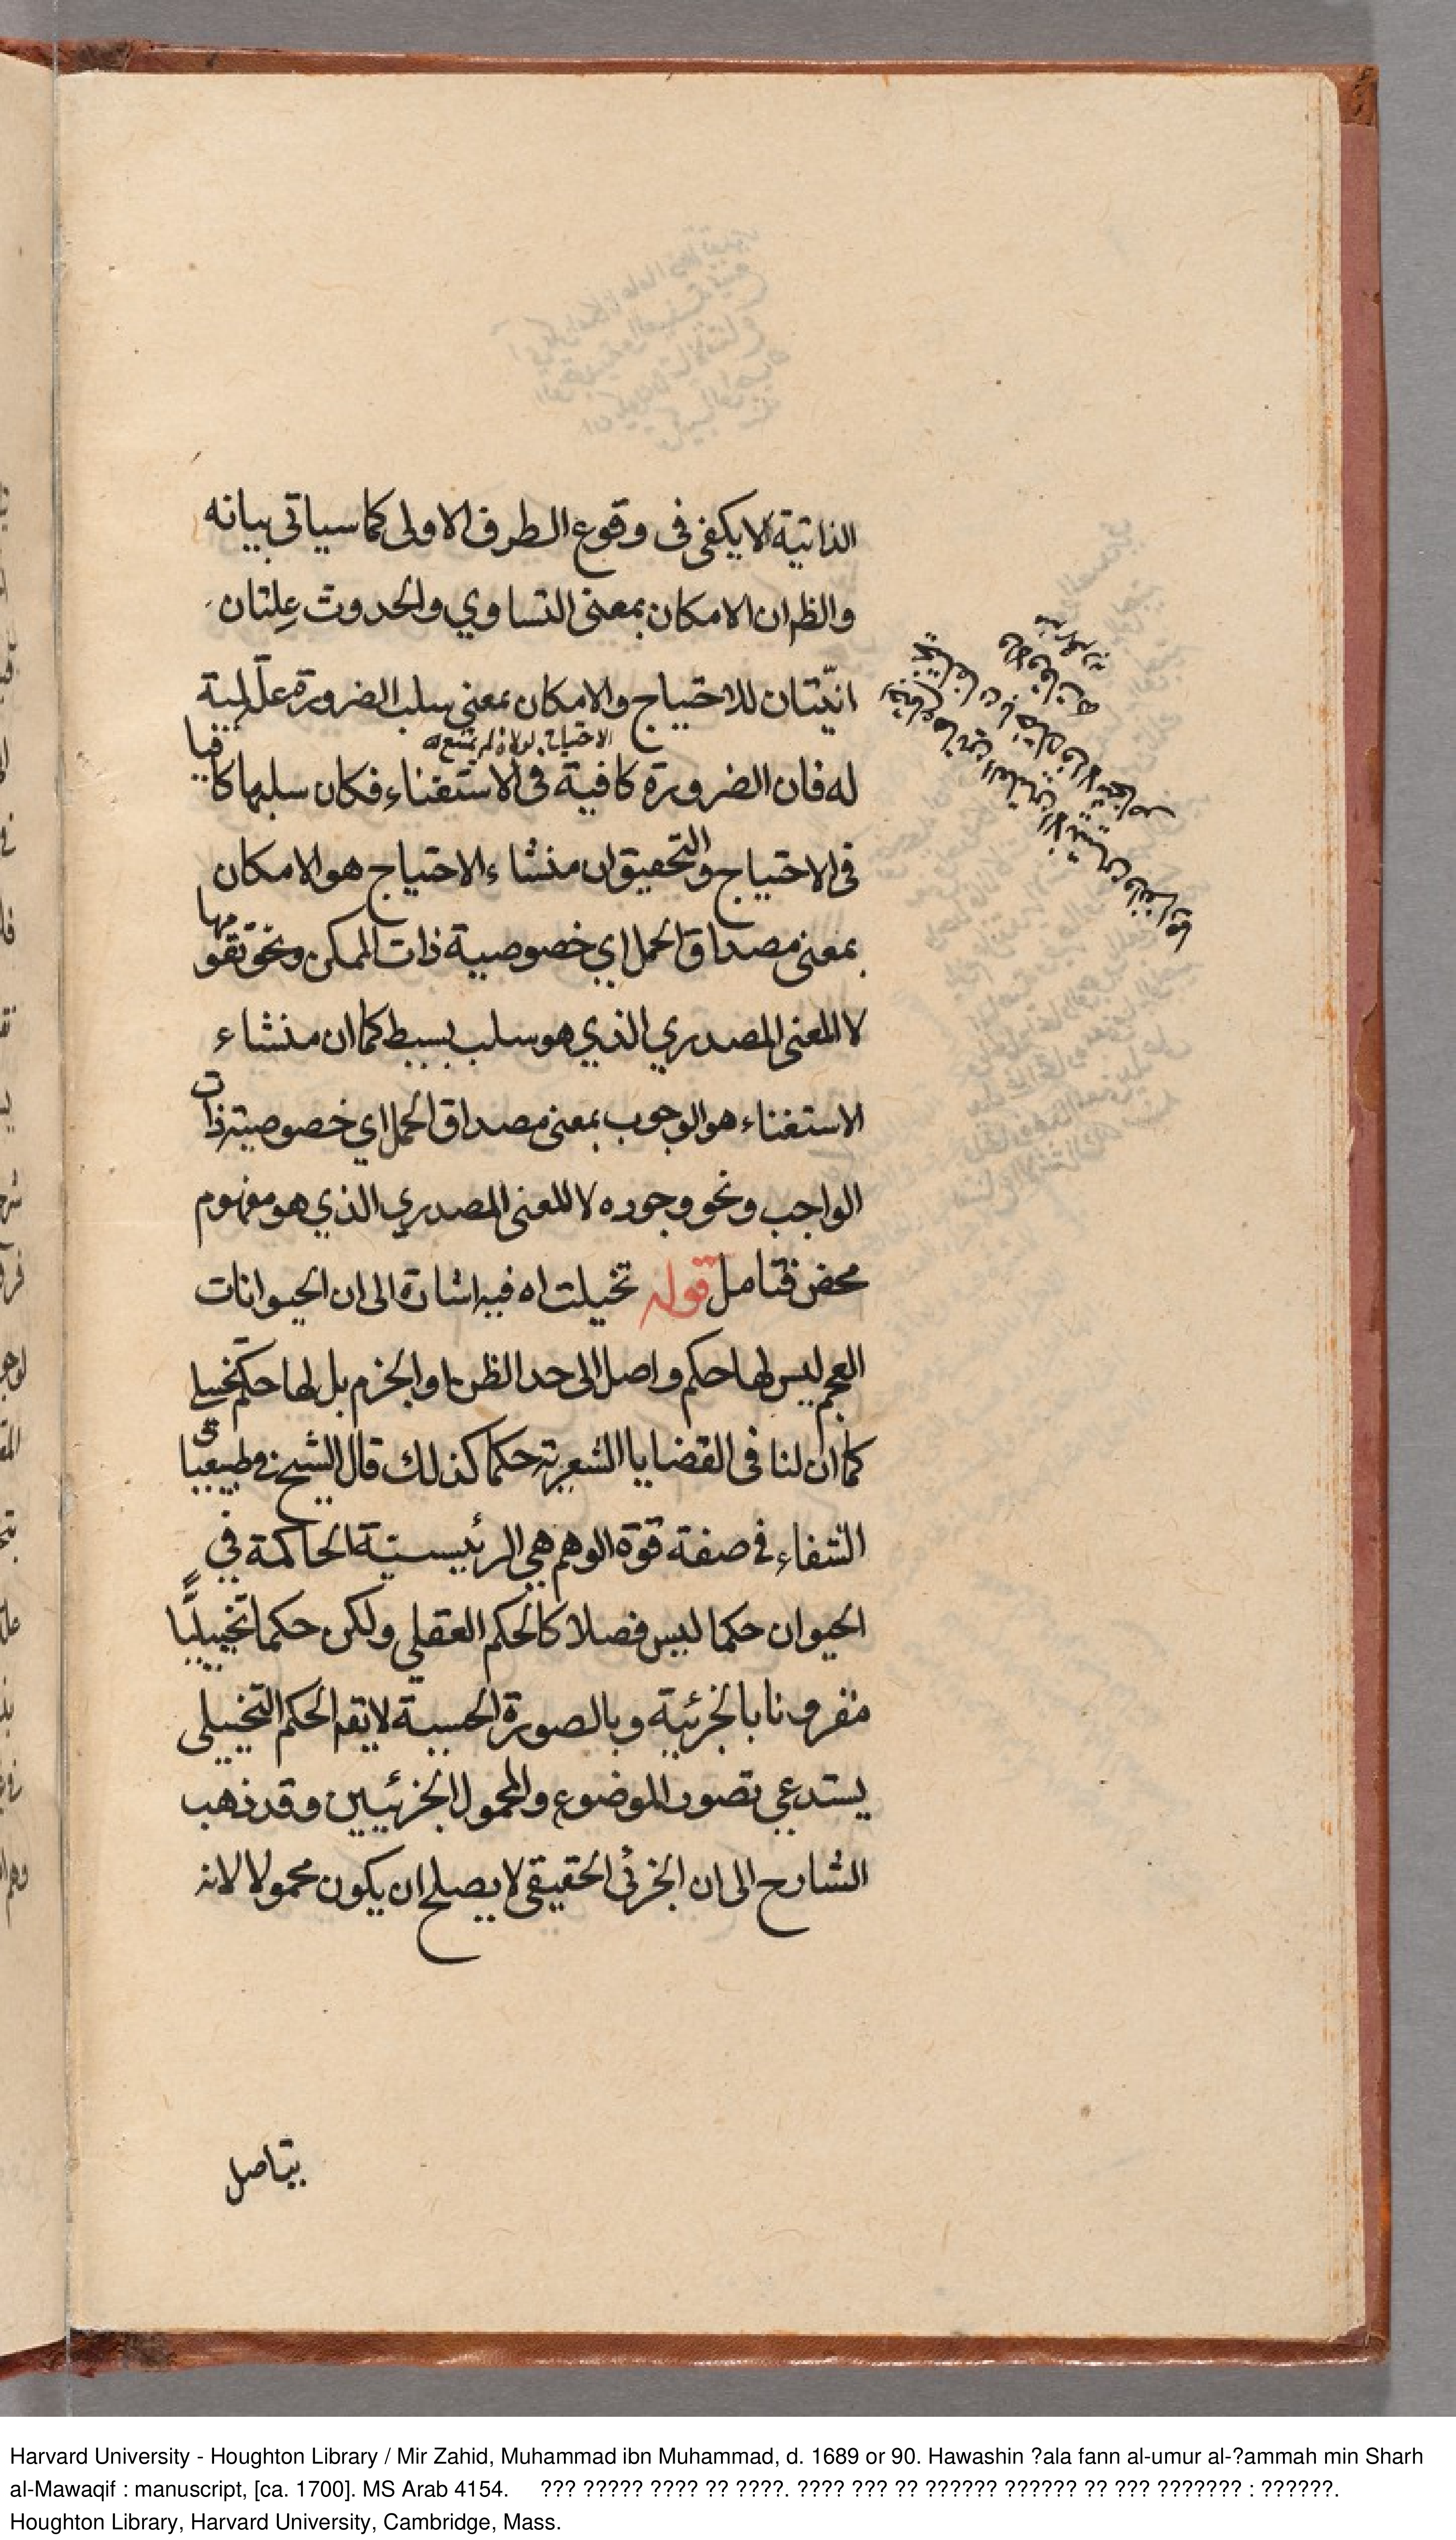 الذاتية لا يكفى فى وقوع الطرف الاولى كما سياتى بيانه
والظ ان الامكان بمعنى التساوي والحدوث علتان
انّيتان للاحتياج والامكان بمعنى سلب الضرورة علّة لمية
له فان الضرورة كافية فى الاستغناء فكان سلبها كافيا
فى الاحتياج والتحقيق ان منشاء الاحتياج هو الامكان
بمعنى مصداق الحمل اي خصوصية ذات الممكن ونحو تقومها
لا المعنى المصدري الذي هو سلب بسيط كما ان منشاء
الاستغناء هو الوجوب بمعنى مصداق الحمل اي خصوصية ذات
الواجب ونحو وجوده لا المعنى المصدري الذي هو مفهوم
محض فتامل قوله تخيلت اه فيه اشارة الى ان الحيوانات
العجم ليس لها حكم واصل الى حد الظن او الجزم بل لها حكم تخييلي
كما ان لنا فى القضايا الشعرية حكما كذلك قال الشيخ في طبيعيات
الشفاء فى صفة قوة الوهم هي الرئيسية الحاكمة في
الحيوان حكما ليس فصلا كالحكم العقلي ولكن حكما تخييليًّا
مقرونا بالجزئية وبالصورة الحسية لا يقم الحكم التخييلى
يستدعي تصور الموضوع والمحمول الجزئيين وقد ذهب
الشارح الى ان الجزئى الحقيقى لا يصلح ان يكون محمولا لانه
يتاصل
Harvard University - Houghton Library / Mir Zahid, Muhammad ibn Muhammad, d. 1689 or 90. Hawashin ?ala fann al-umur al-?ammah min Sharh
al-Mawaqif : manuscript, [ca. 1700]. MS Arab 4154. ??? ????? ???? ?? ????. ???? ??? ?? ?????? ?????? ?? ??? ??????? : ??????.
Houghton Library, Harvard University, Cambridge, Mass.